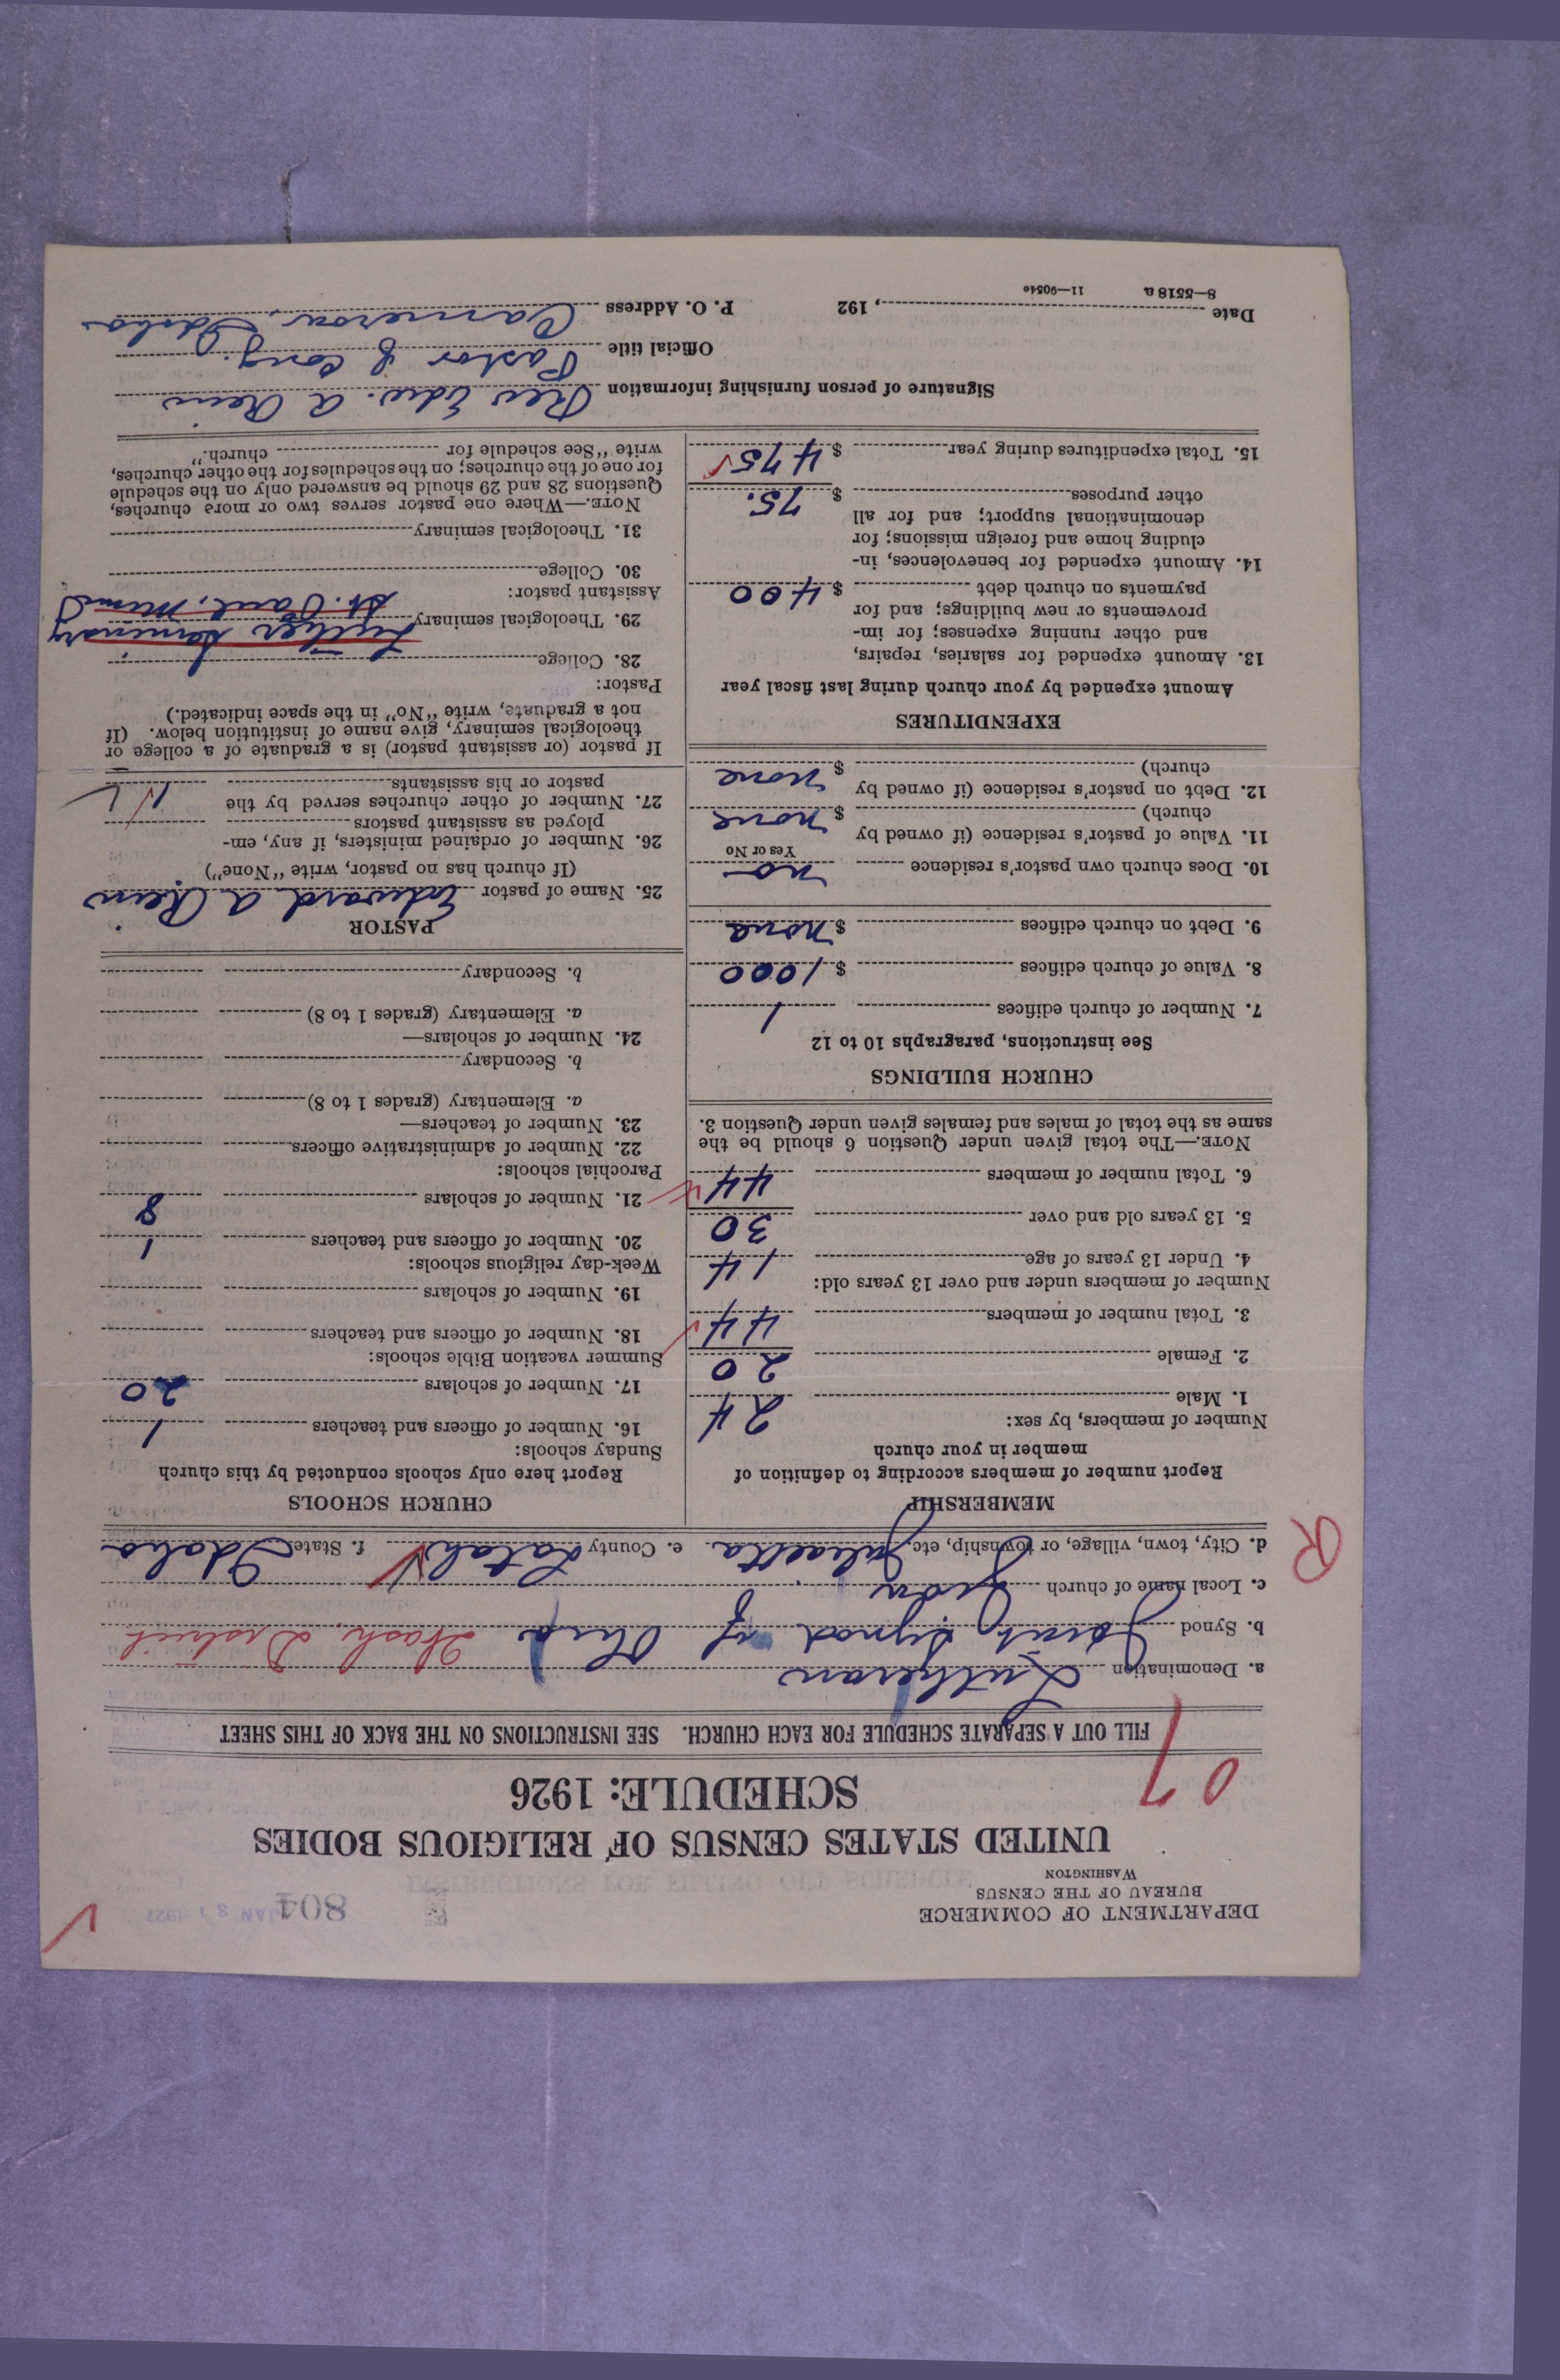 DEPARTMENT OF COMMERCE
BUREAU OF THE CENSUS
WASHINGTON
804
JAN 31 1927
UNITED STATES CENSUS OF RELIGIOUS BODIES
SCHEDULE: 1926
07
FILL OUT A SEPARATE SCHEDULE FOR EACH CHURCH. SEE INSTRUCTIONS ON THE BACK OF THIS SHEET
a. Denomination Lutheran
b. Synod Joint Synod of Ohio Wash. District
c. Local name of church Zion
d. City, town, village, or township, etc. Juliaetta e. County Latah f. State Idaho
R
MEMBERSHIP
Report number of members according to definition of
member in your church
Number of members, by sex:
1. Male 24
2. Female 20
3. Total number of members 44
Number of members under and over 13 years old:
4. Under 13 years of age 14
5. 13 years old and over 30
6. Total number of members 44
NOTE.—The total given under Question 6 should be the
same as the total of males and females given under Question 3.
CHURCH BUILDINGS
See instructions, paragraphs 10 to 12
7. Number of church edifices 1
8. Value of church edifices $ 1000
9. Debt on church edifices $ none
10. Does church own pastor's residence no
Yes or No
11. Value of pastor's residence (if owned by
church) $ none
12. Debt on pastor's residence (if owned by
church) $ none
EXPENDITURES
Amount expended by your church during last fiscal year
13. Amount expended for salaries, repairs,
and other running expenses; for im-
provements or new buildings; and for
payments on church debt $ 400
14. Amount expended for benevolences, in-
cluding home and foreign missions; for
denominational support; and for all
other purposes $ 75.
15. Total expenditures during year $ 475
CHURCH SCHOOLS
Report here only schools conducted by this church
Sunday schools:
16. Number of officers and teachers 1
17. Number of scholars 20
Summer vacation Bible schools:
18. Number of officers and teachers
19. Number of scholars
Week-day religious schools:
20. Number of officers and teachers 1
21. Number of scholars 8
Parochial schools:
22. Number of administrative officers
23. Number of teachers—
a. Elementary (grades 1 to 8)
b. Secondary
24. Number of scholars—
a. Elementary (grades 1 to 8)
b. Secondary
PASTOR
25. Name of pastor Edward A Rein
(If church has no pastor, write "None")
26. Number of ordained ministers, if any, em-
ployed as assistant pastors
27. Number of other churches served by the
pastor or his assistants 1
If pastor (or assistant pastor) is a graduate of a college or
theological seminary, give name of institution below. (If
not a graduate, write "No" in the space indicated.)
Pastor:
28. College
29. Theological seminary Luther Seminary
St. Paul, Minn
Assistant pastor:
30. College
31. Theological seminary
NOTE.—Where one pastor serves two or more churches,
Questions 28 and 29 should be answered only on the schedule
for one of the churches; on the schedules for the other churches,
write "See schedule for church."
Signature of person furnishing information Rev Edw. A Rein
Official title Pastor of Cong.
Date , 192 P. O. Address Cameron, Idaho
8—5518 a 11—9054c